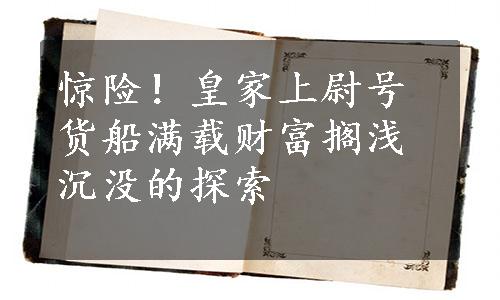 惊险！皇家上尉号
货船满载财富搁浅
沉没的探索